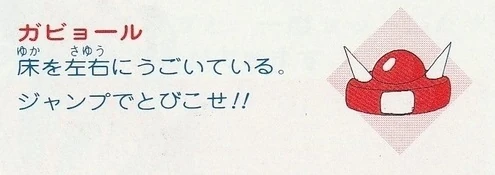 ガビョール
ゆか さゆう
床を左右にうごいている。
ジャンプでとびこせ!!